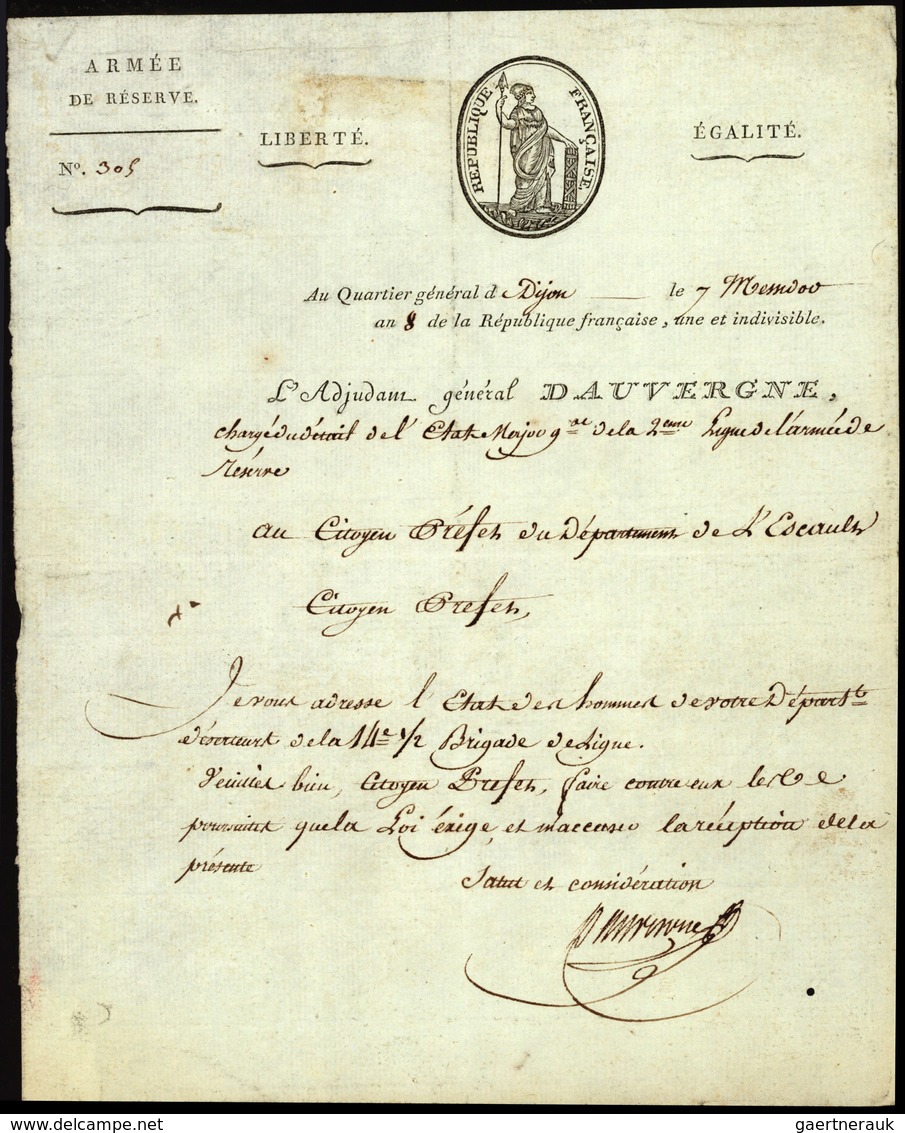 ARMÉE
DE RÉSERVE.
Nº. 305
LIBERTÉ.
RÉPUBLIQUE FRANÇAISE
ÉGALITÉ.
Au Quartier général d Dijon le 7 Messidor
an 8 de la République française, une et indivisible.
L'Adjudant général DAUVERGNE,
chargé du détail de l'Etat Major gal de la 2eme Ligne de l'armée de
réserve
au Citoyen Préfet du Département de L'Escault
Citoyen Prefet,
Je vous adresse l'Etat des hommes de votre Départt
déserteurs de la 14e 1/2 Brigade de Ligne.
Veuillez bien, Citoyen Prefet, faire contre eux les
poursuites que la Loi éxige et m'accuser la réception de la
présente
Salut et considération
Dauvergne
gaertnerauk